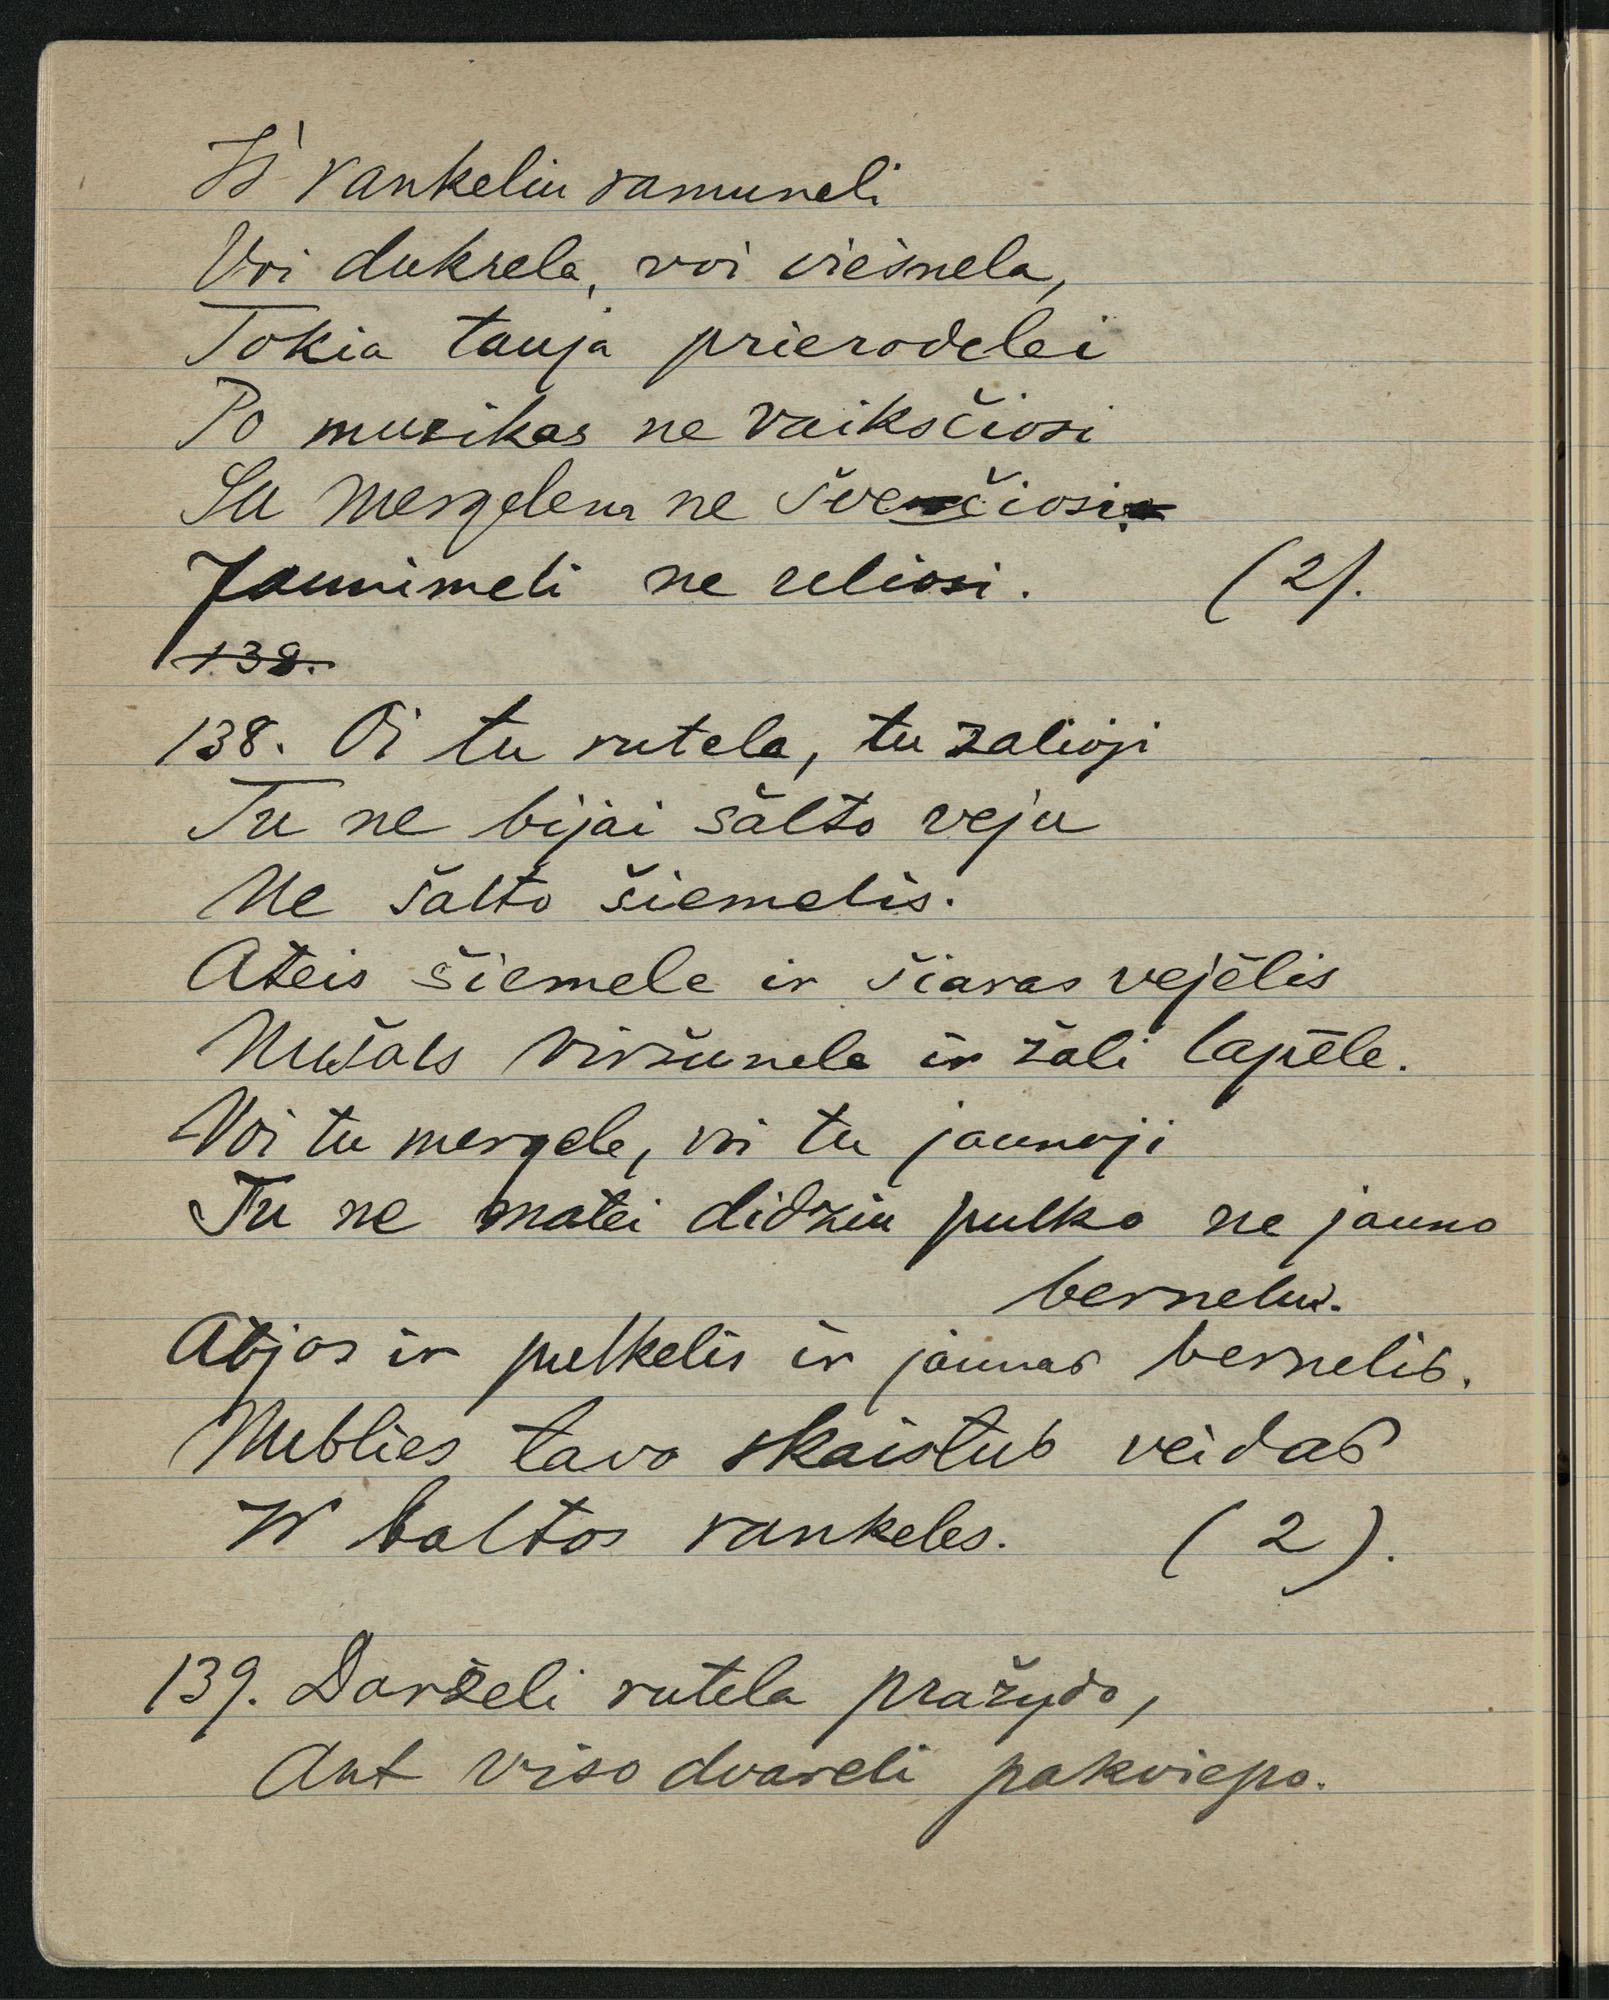 Iš rankeliu ramuneli
Voi dukrela, voi viešnela,
Tokia tauja prierodelei
Po muzikas ne vaiksčiosi
Su mergelem ne švenčiosi
Jaunimeli ne zeliosi. (2).
138.
138. Oi tu rutela, tu zalioji
Tu ne bijai šalto veju
Ne šalto šiemelis.
Ateis šiemele ir šiaras vejėlis
Nušals viržunele ir žali lapėle.
Voi tu mergele, voi tu jaunoji
Tu ne matei didziu pulko ne jauno
berneliu.
Atjos ir pulkelis ir jaunas bernelis.
Nublies tavo skaistus veidas
Ir baltos rankeles. (2).
139. Darželi rutela pražydo,
Ant viso dvareli pakviepo.